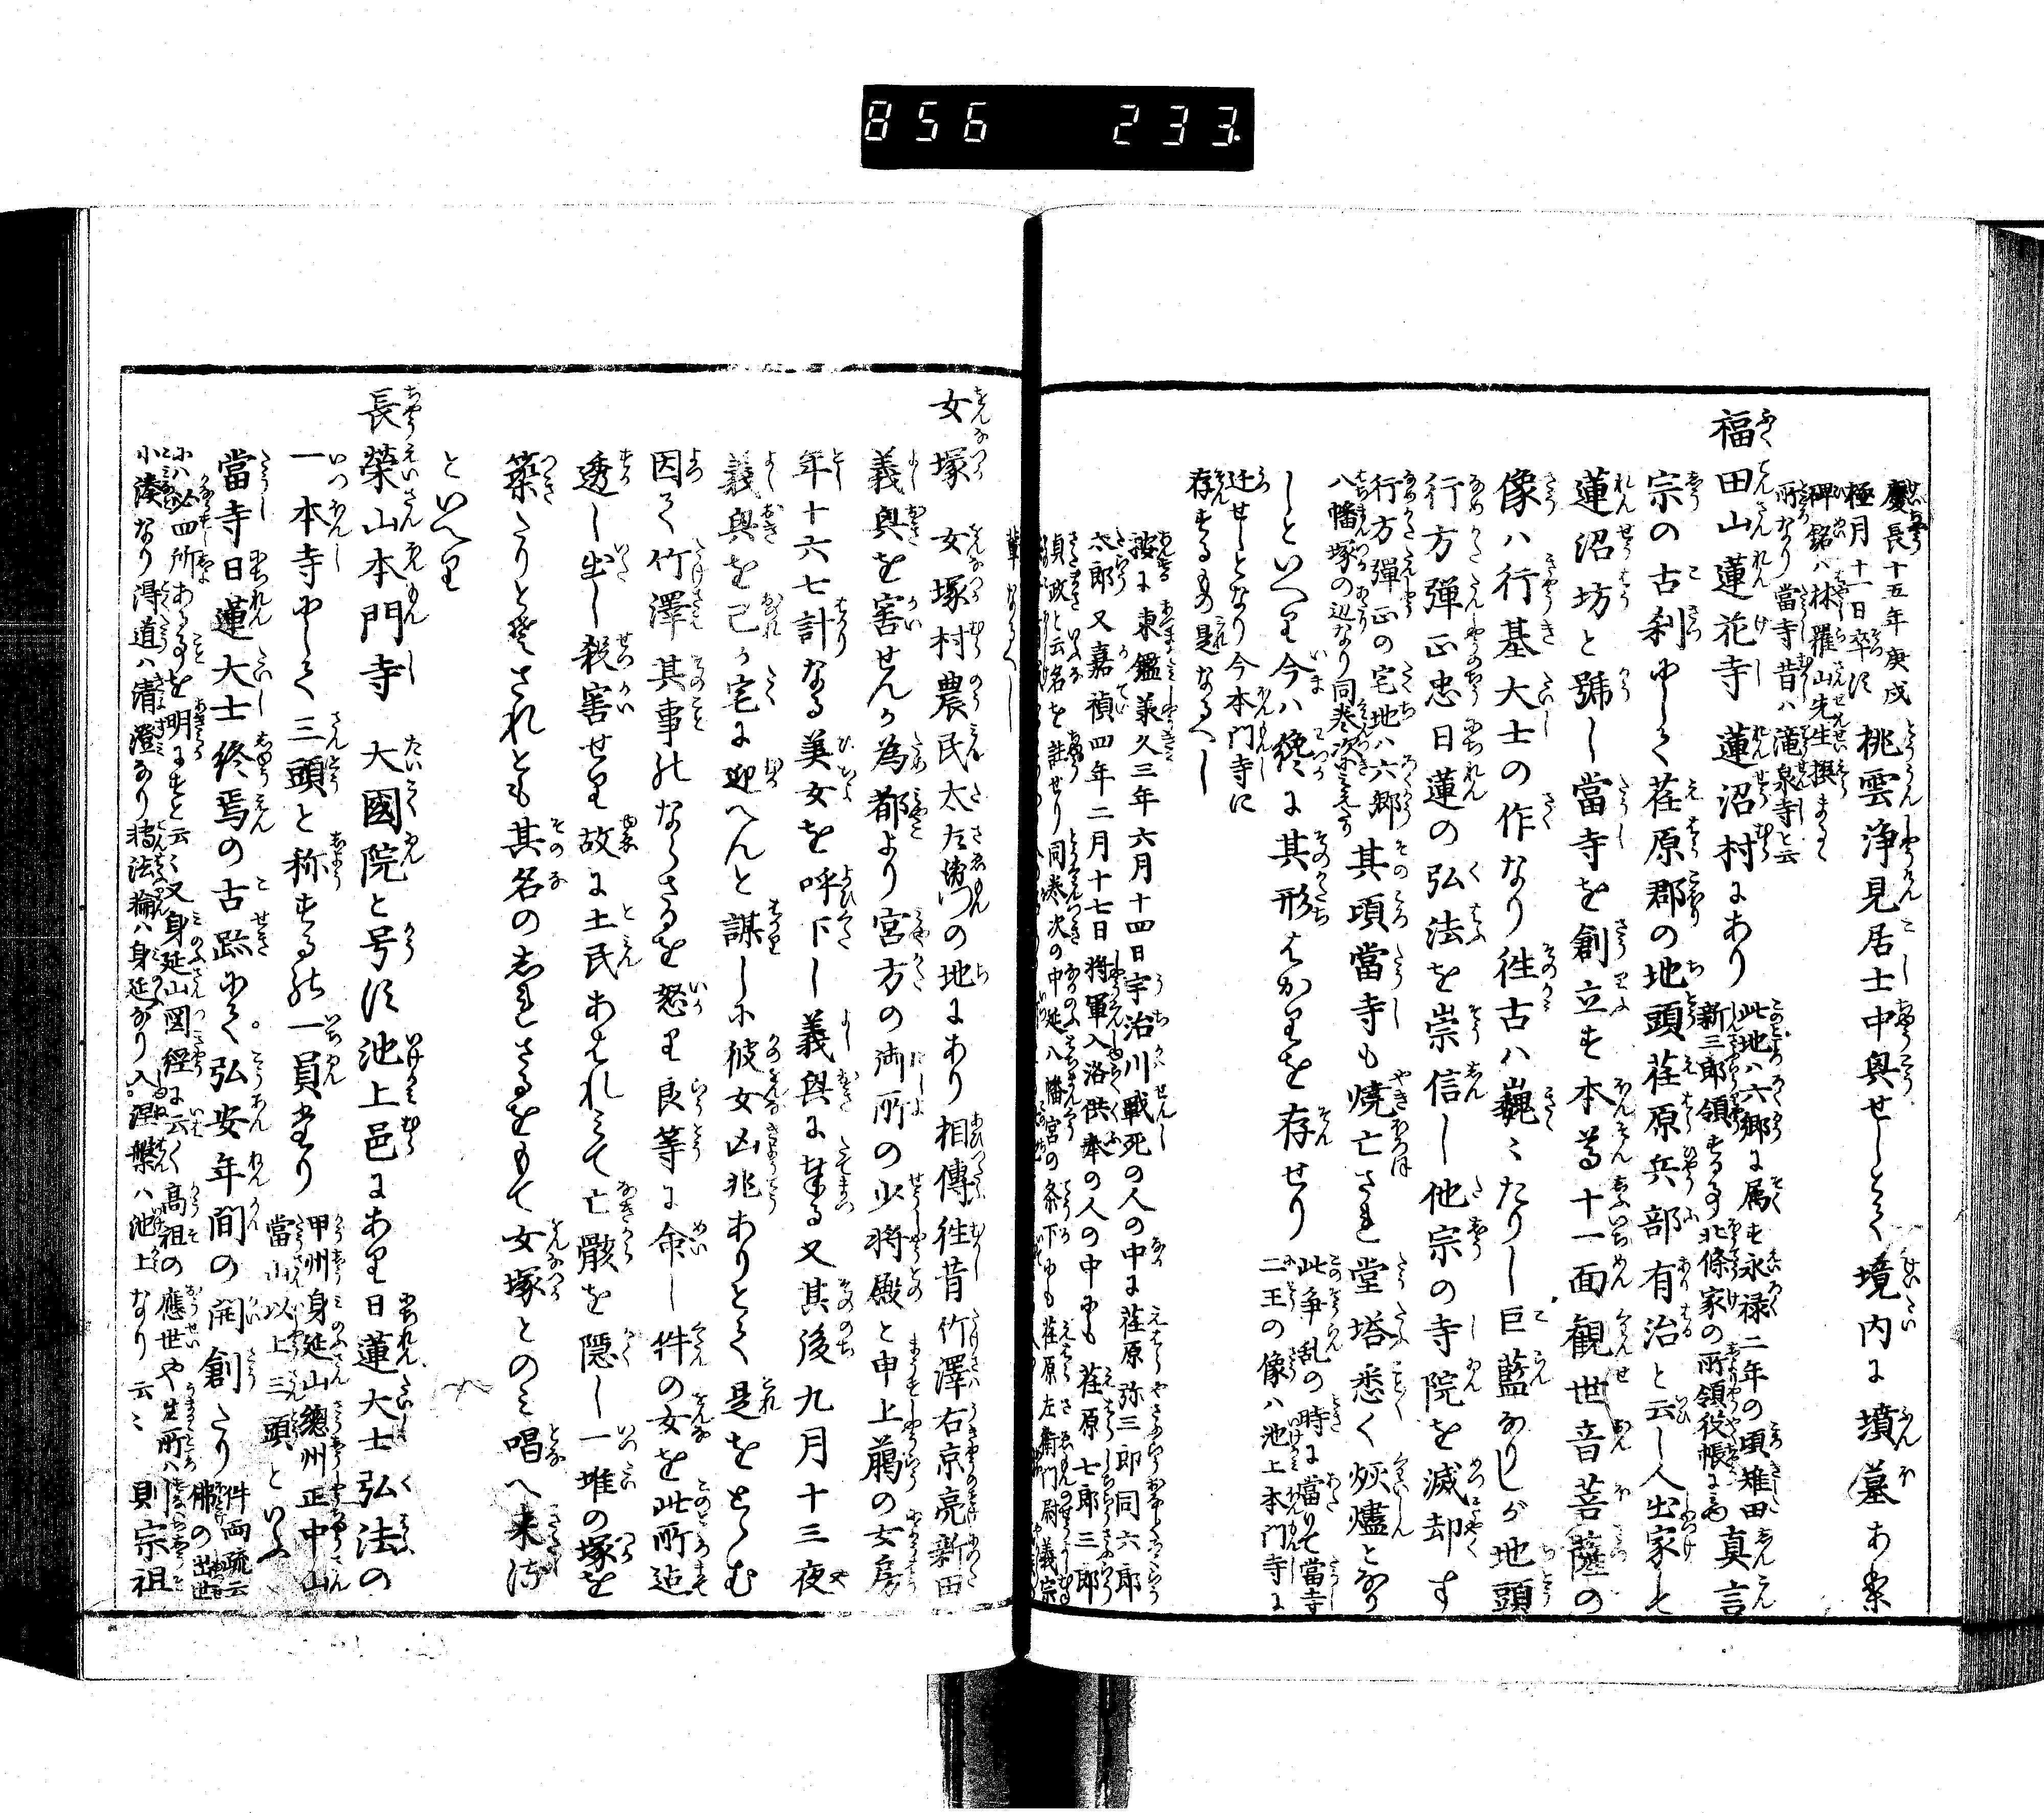 856 233
慶長十五年庚戌
極月十一日卒す 桃雲浄見居士中興せしとて境内に墳墓あり
碑銘ハ林羅山先生撰する
所なり當寺昔ハ滝泉寺と云
福田山蓮花寺 蓮沼村にあり 此地ハ六郷に属す永禄二年の頃
新三郎領する事北條家の所領役帳に 真言
宗の古刹にして荏原郡の地頭荏原兵部有治と云し人出家して
蓮沼坊と號し當寺を創立す本尊十一面観世音菩薩の
像ハ行基大士の作なり往古ハ巍々たりし巨藍なりしが地頭
行方弾正忠日蓮の弘法を崇信し他宗の寺院を滅却す
行方弾正の宅地ハ六郷
八幡塚の辺なり同巻次に 其頃當寺も焼亡され堂塔悉く灰燼となり
しといへり今ハ纔に其形ちばかりを存せり 此争乱の時に當りて當寺
二王の像ハ池上本門寺に
迁せしとなり今本門寺に
存するもの是なるへし
按に東鑑承久三年六月十四日宇治川戦死の人の中に荏原弥三郎同六郎
太郎又嘉禎四年二月十七日将軍入洛供奉の人の中にも荏原七郎三郎
貞政と云名を註せり同巻次の中延八幡宮の条下にも荏原左衛門尉義宗
女塚 女塚村農民太左衛門の地にあり相傳往昔竹澤右京亮新田
義興を害せんか為都より宮方の御所の少将殿と申上﨟の女房
年十六七計なる美女を呼下し義興に奉る又其後九月十三夜
義興を己か宅に迎へんと謀しに彼女凶兆ありとて是をとゝむ
因て竹澤其事のならさるを怒り良等に命し件の女を此所迠
透し出し殺害せり故に土民あはれミて亡骸を隠し一堆の塚を
築たりとそされとも其名のしれさるをもて女塚とのミ唱へ来る
といへり
長榮山本門寺 大國院と号す池上邑にあり日蓮大士弘法の
一本寺にして三頭と称するの一員たり 甲州身延山總州正中山
當山以上三頭といふ
當寺日蓮大士終焉の古跡にて弘安年間の開創たり 件両疏云
佛の出世
にハ必四所あることを明にすと云々又身延山図経に云く高祖の應世や生所ハ
小湊なり得道ハ清澄なり轉法輪ハ身延なり入涅槃ハ池上なり云々 則宗祖